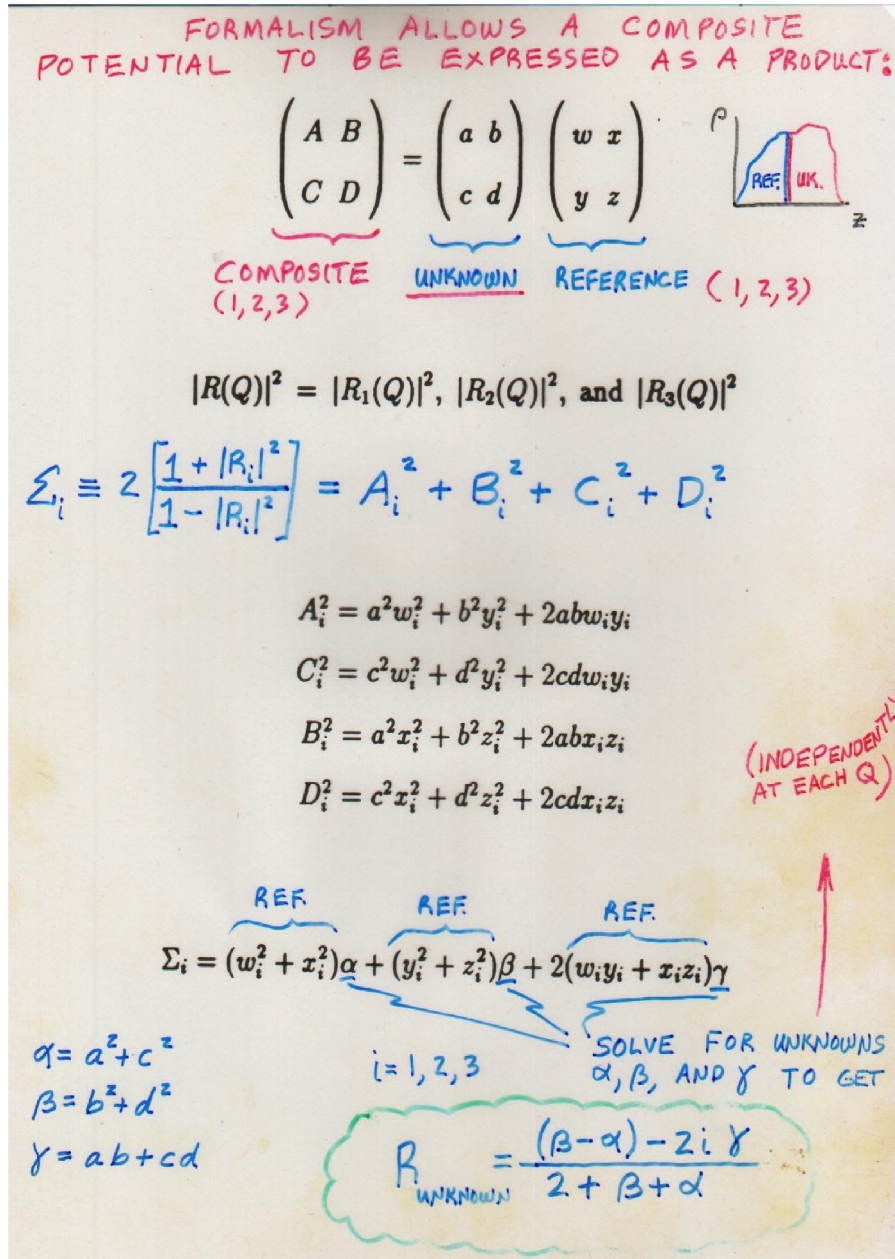 FORMALISM ALLOWS A COMPOSITE
POTENTIAL TO BE EXPRESSED AS A PRODUCT:
( A B ) = ( a b ) ( w x )
( C D ) ( c d ) ( y z )
ρ
REF. UK.
z
COMPOSITE UNKNOWN REFERENCE (1,2,3)
(1,2,3)
|R(Q)|² = |R₁(Q)|², |R₂(Q)|², and |R₃(Q)|²
Σᵢ ≡ 2 [ (1 + |Rᵢ|²) / (1 - |Rᵢ|²) ] = Aᵢ² + Bᵢ² + Cᵢ² + Dᵢ²
Aᵢ² = a²wᵢ² + b²yᵢ² + 2abwᵢyᵢ
Cᵢ² = c²wᵢ² + d²yᵢ² + 2cdwᵢyᵢ
Bᵢ² = a²xᵢ² + b²zᵢ² + 2abxᵢzᵢ
Dᵢ² = c²xᵢ² + d²zᵢ² + 2cdxᵢzᵢ
(INDEPENDENTLY
AT EACH Q)
REF. REF. REF.
Σᵢ = (wᵢ² + xᵢ²)α + (yᵢ² + zᵢ²)β + 2(wᵢyᵢ + xᵢzᵢ)γ
α = a² + c²
β = b² + d²
γ = ab + cd
i = 1, 2, 3
SOLVE FOR UNKNOWNS
α, β, AND γ TO GET
R UNKNOWN = ((β-α) - 2iγ) / (2 + β + α)